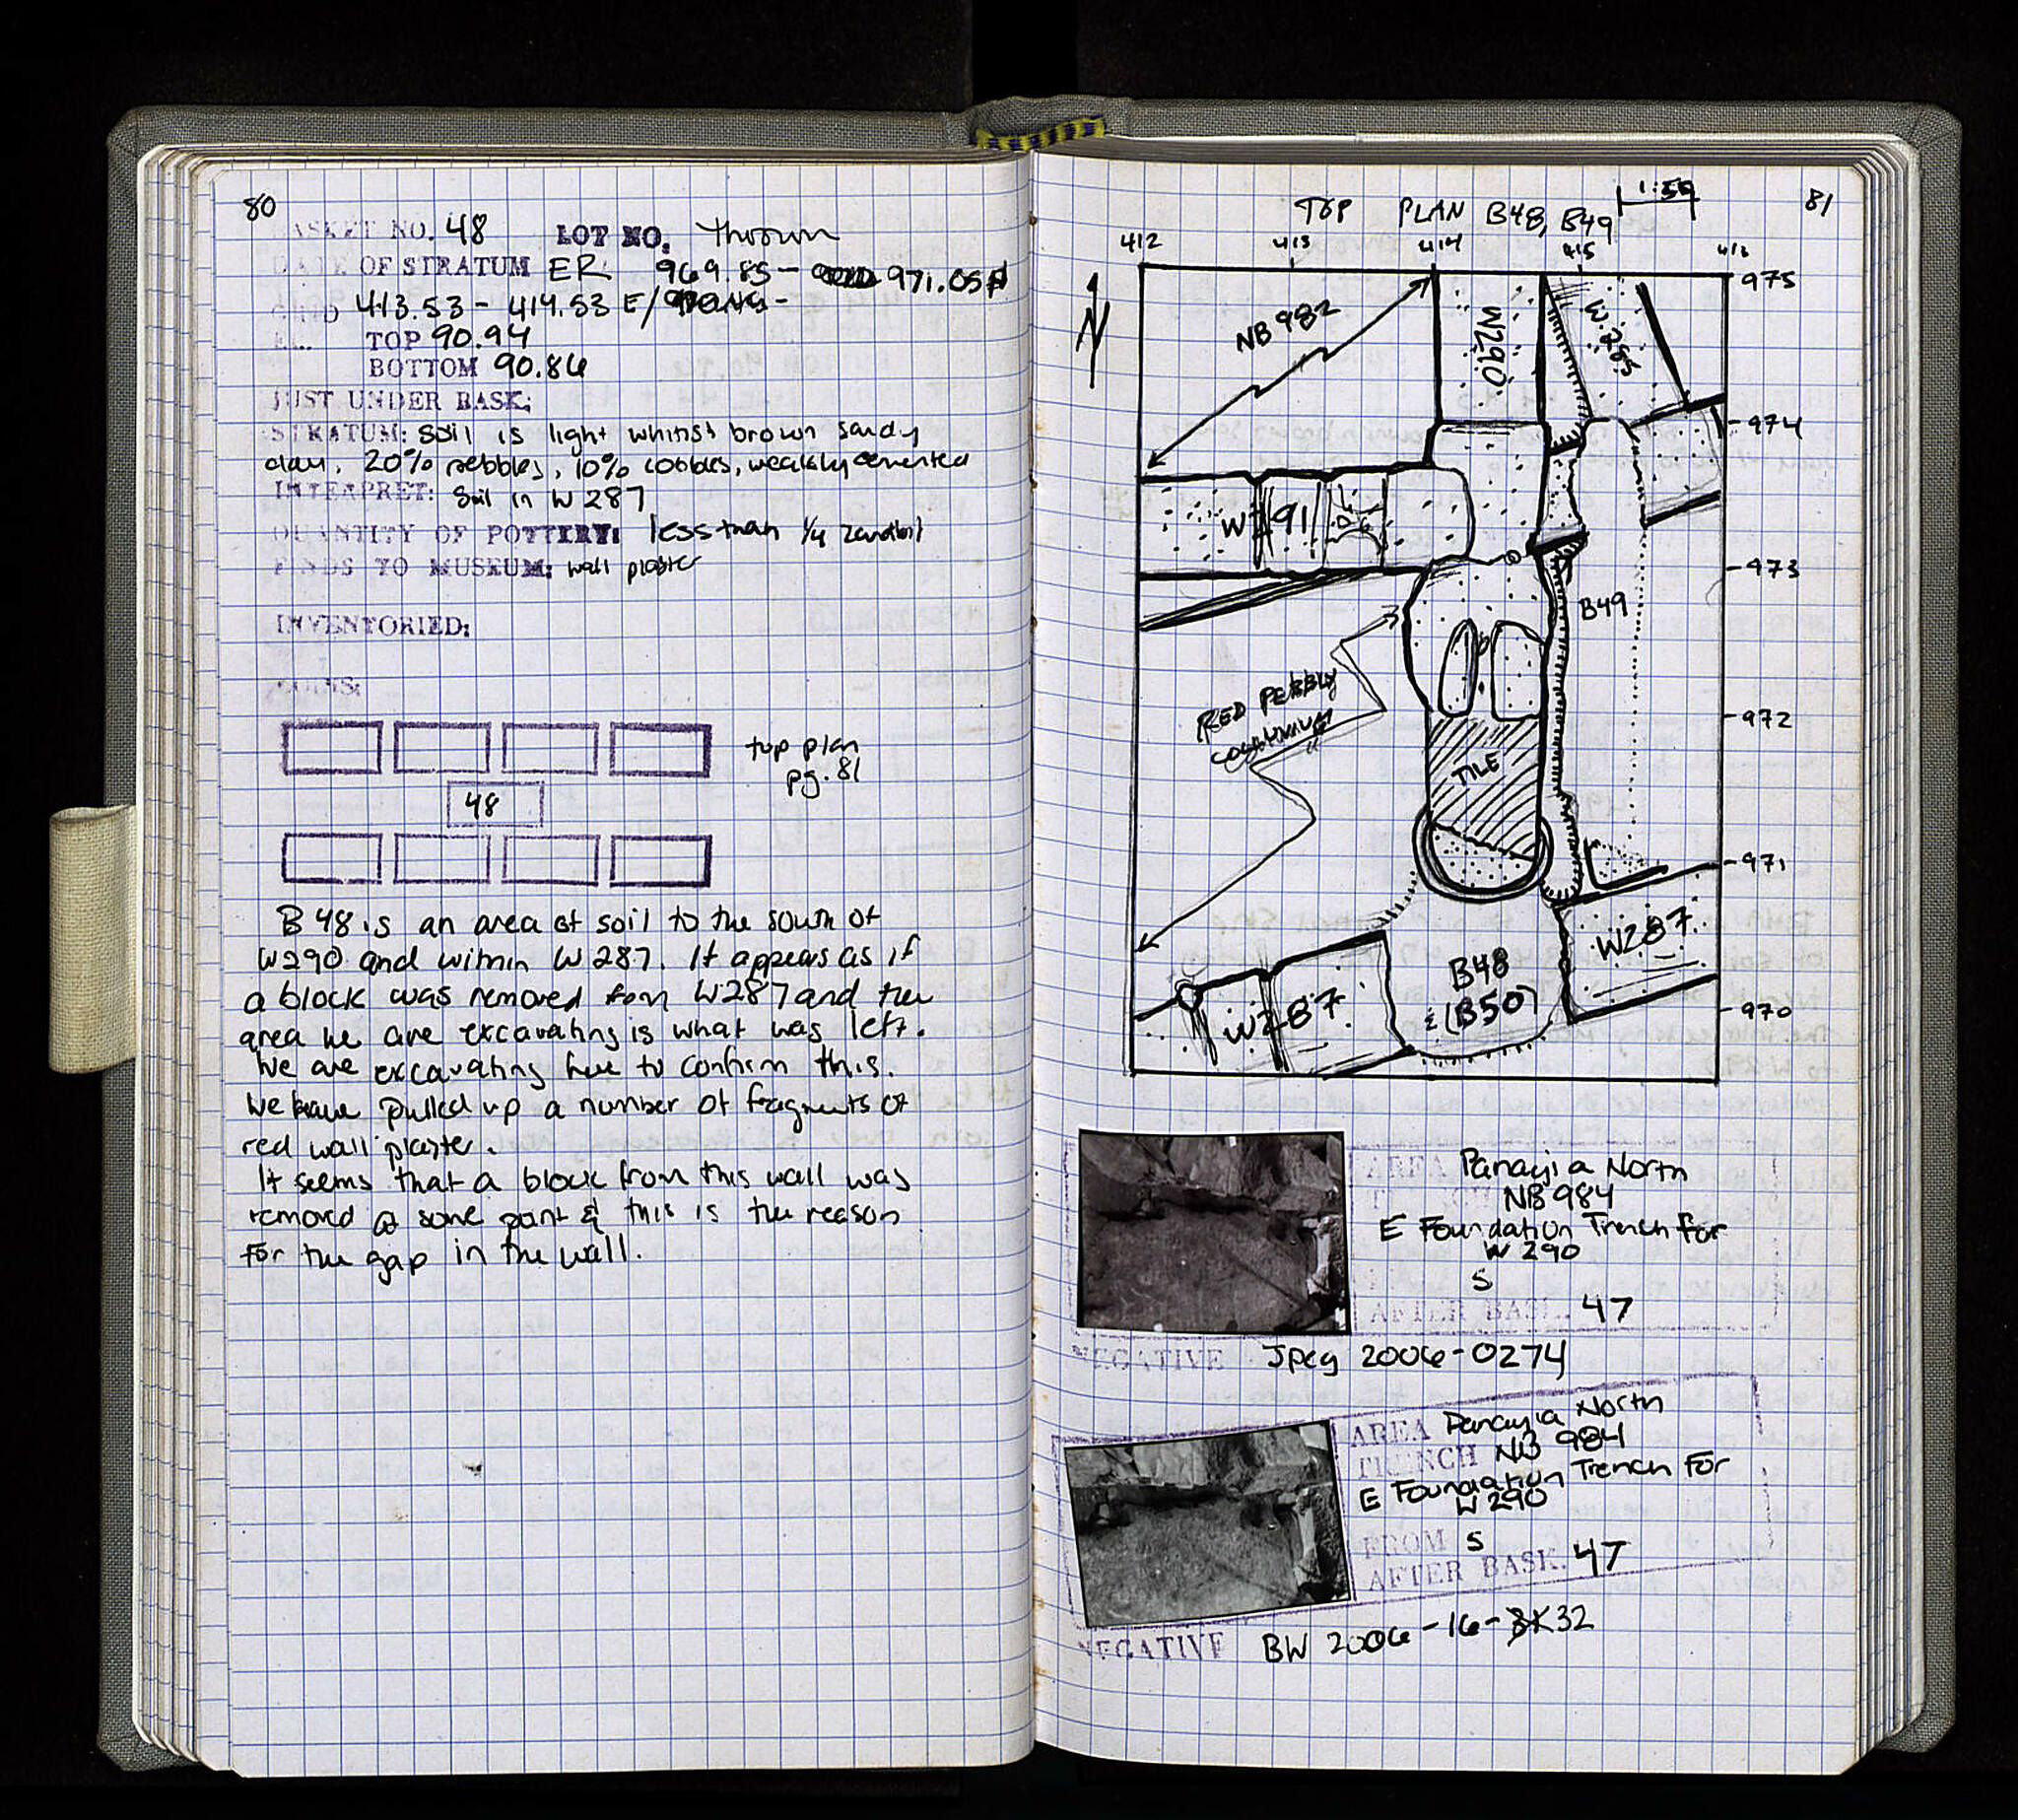 80
BASKET NO. 48 LOT NO. thrown
DATE OF STRATUM ER 969.85 - 971.05 N
GRID 413.53 - 414.53 E/
EL. TOP 90.94
BOTTOM 90.86
JUST UNDER BASK:
STRATUM: Soil is light whitish brown sandy
clay, 20% pebbles, 10% cobbles, weakly cemented
INTERPRET: Soil in W 287
QUANTITY OF POTTERY: less than 1/4 zembil
FINDS TO MUSEUM: wall plaster
INVENTORIED:
COINS:
top plan
pg. 81
48
B 48 is an area of soil to the south of
W290 and within W 287. It appears as if
a block was removed from W287 and the
area we are excavating is what was left.
We are excavating here to confirm this.
We have pulled up a number of fragments of
red wall plaster.
It seems that a block from this wall was
removed @ some point & this is the reason
for the gap in the wall.
81
1:50
TOP PLAN B48, B49
412 413 414 415 416
975
N
NB 982
W290
W.285
974
W291
973
B49
RED PEBBLY
972
TILE
971
W287
B48
& (B50)
W287
970
AREA Panayia North
TRENCH NB 984
E Foundation Trench for
W 290
S
AFTER BASK. 47
NEGATIVE Jpeg 2006-0274
AREA Panayia North
TRENCH NB 984
E Foundation Trench For
W 290
FROM S
AFTER BASK. 47
NEGATIVE BW 2006-16-32